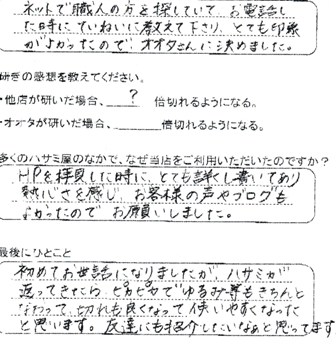 ネットで職人の方を探していて、お電話し
た時にていねいに教えて下さり、とても印象
がよかったので、オオタさんに決めました。
研ぎの感想を教えてください。
・他店が研いだ場合、 ? 倍切れるようになる。
・オオタが研いだ場合、 倍切れるようになる。
多くのハサミ屋のなかで、なぜ当店をご利用いただいたのですか?
HPを拝見した時に、とても詳しく書いてあり
熱心さを感じ、お客様の声やブログも
よかったので お願いしました。
最後にひとこと
初めてお世話になりましたが、ハサミが
返ってきたら ピカピカで ゆるみ等もきちんと
なおって、切れも良くなって 使いやすくなった
と思います。友達にも紹介したいなぁと思ってます